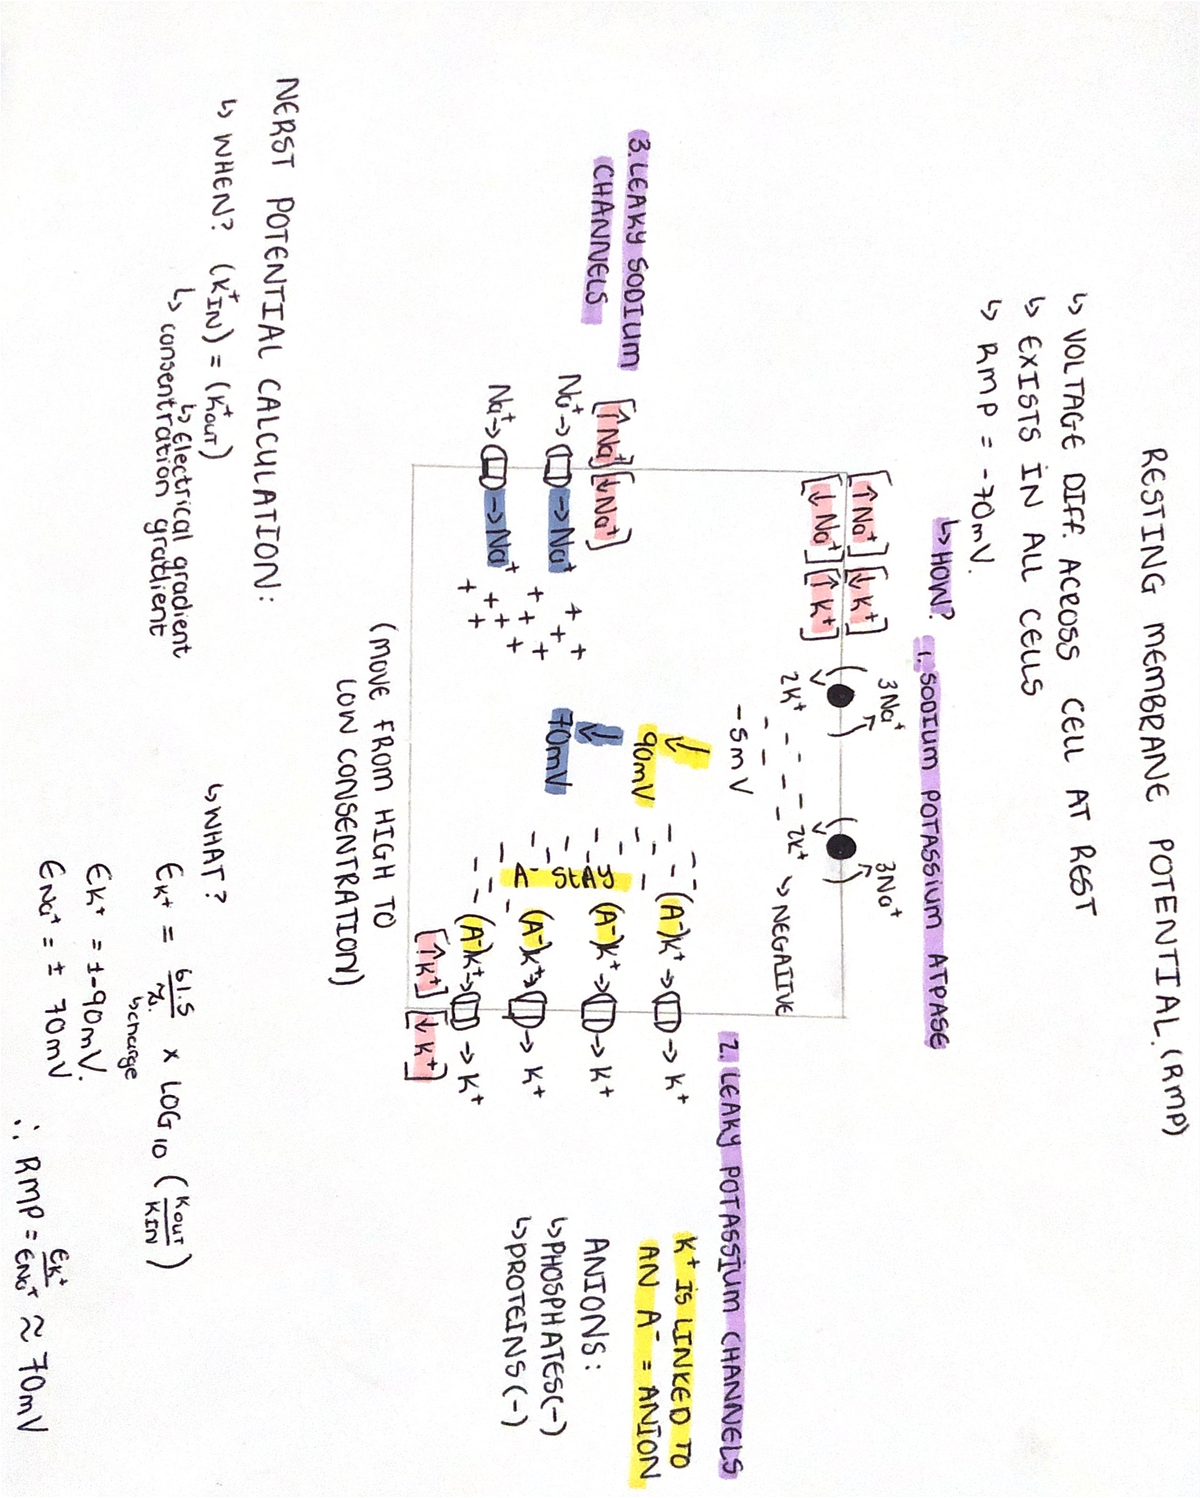 RESTING MEMBRANE POTENTIAL. (RMP)
↳ VOLTAGE DIFF. ACROSS CELL AT REST
↳ EXISTS IN ALL CELLS
↳ RMP = -70mV.
↳ HOW?
1. SODIUM POTASSIUM ATPASE
3Na+ 3Na+
[↑Na+] [↓K+]
[↓Na+] [↑K+]
2K+ 2K+
↳ NEGATIVE
-5mV
2. LEAKY POTASSIUM CHANNELS
K+ IS LINKED TO
AN A- = ANION
ANIONS:
↳ PHOSPHATES(-)
↳ PROTEINS(-)
90mV
70mV
A- STAY
(A-)K+ → → K+
(A-)K+ → → K+
(A-)K+ → → K+
(A-)K+ → → K+
[↑K+] [↓K+]
3. LEAKY SODIUM
CHANNELS
[↑Na+] [↓Na+]
Na+ → → Na+
Na+ → → Na+
(MOVE FROM HIGH TO
LOW CONSENTRATION)
NERST POTENTIAL CALCULATION:
↳ WHEN? (K+IN) = (K+OUT)
↳ Electrical gradient
↳ consentration gradient
↳ WHAT?
EK+ = 61.5 x LOG10 (KOUT/KIN)
↳ charge
EK+ = ±-90mV.
ENa+ = ± 70mV
∴ RMP = EK+/ENa+ ≈ 70mV